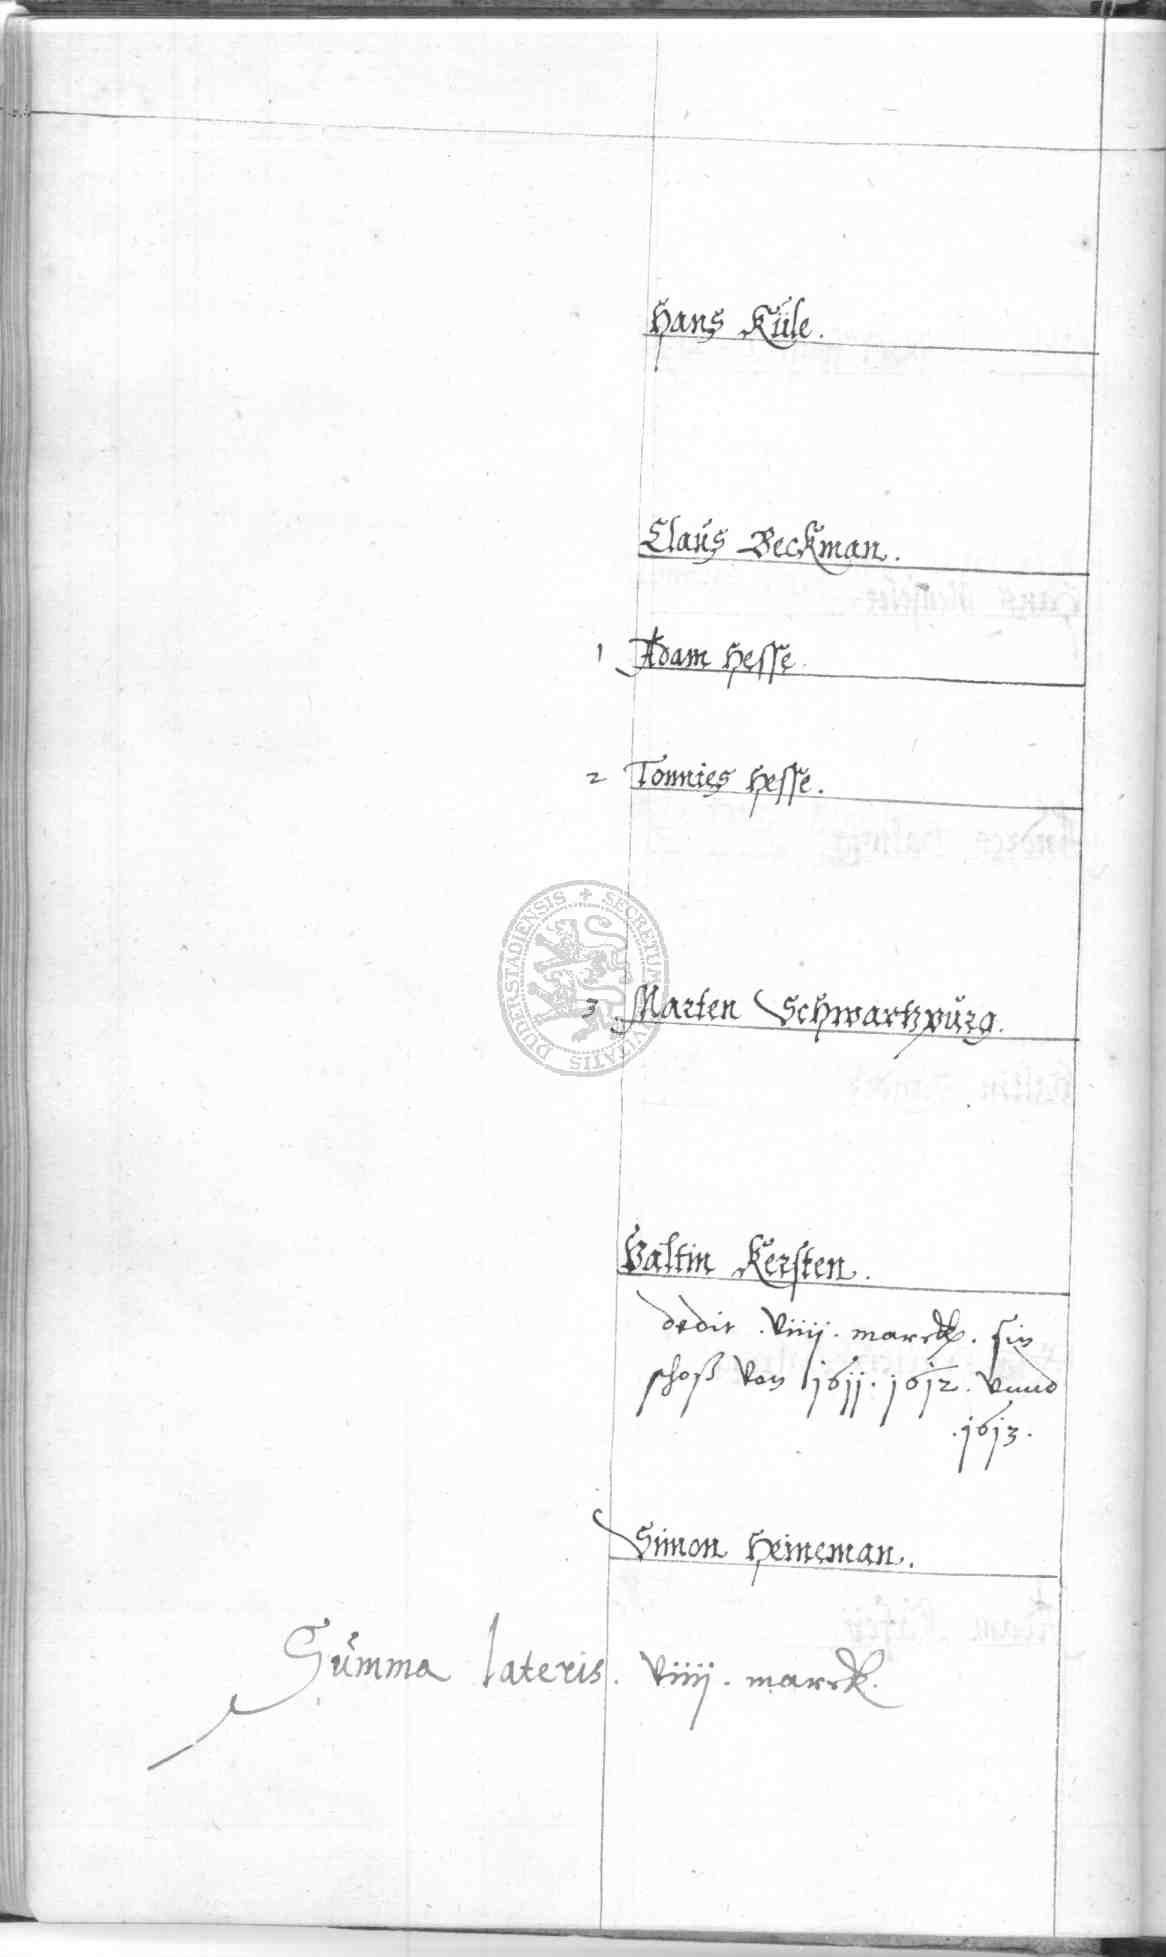 Hans Küle.
Claus Beckman.
1 Adam Hesse.
2 Tonnies Hesse.
SECRETUM CIVITATIS DUDERSTADIENSIS
3 Marten Schwartzpurg.
Valtin Kersten.
dedit . viiij . marck . sin
schoß von 1611 . 1612 . vnnd
. 1613 .
Simon Heineman.
Summa lateris . viiij . marck.